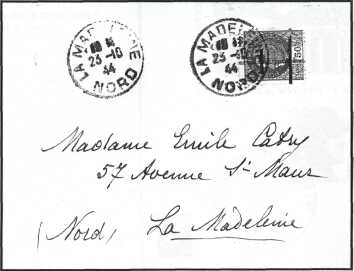 LA MADELEINE
23-10
44
NORD
LA MADELEINE
23-10
44
NORD
50c
Madame Emile Catry
57 Avenue St Maur
(Nord) La Madeleine